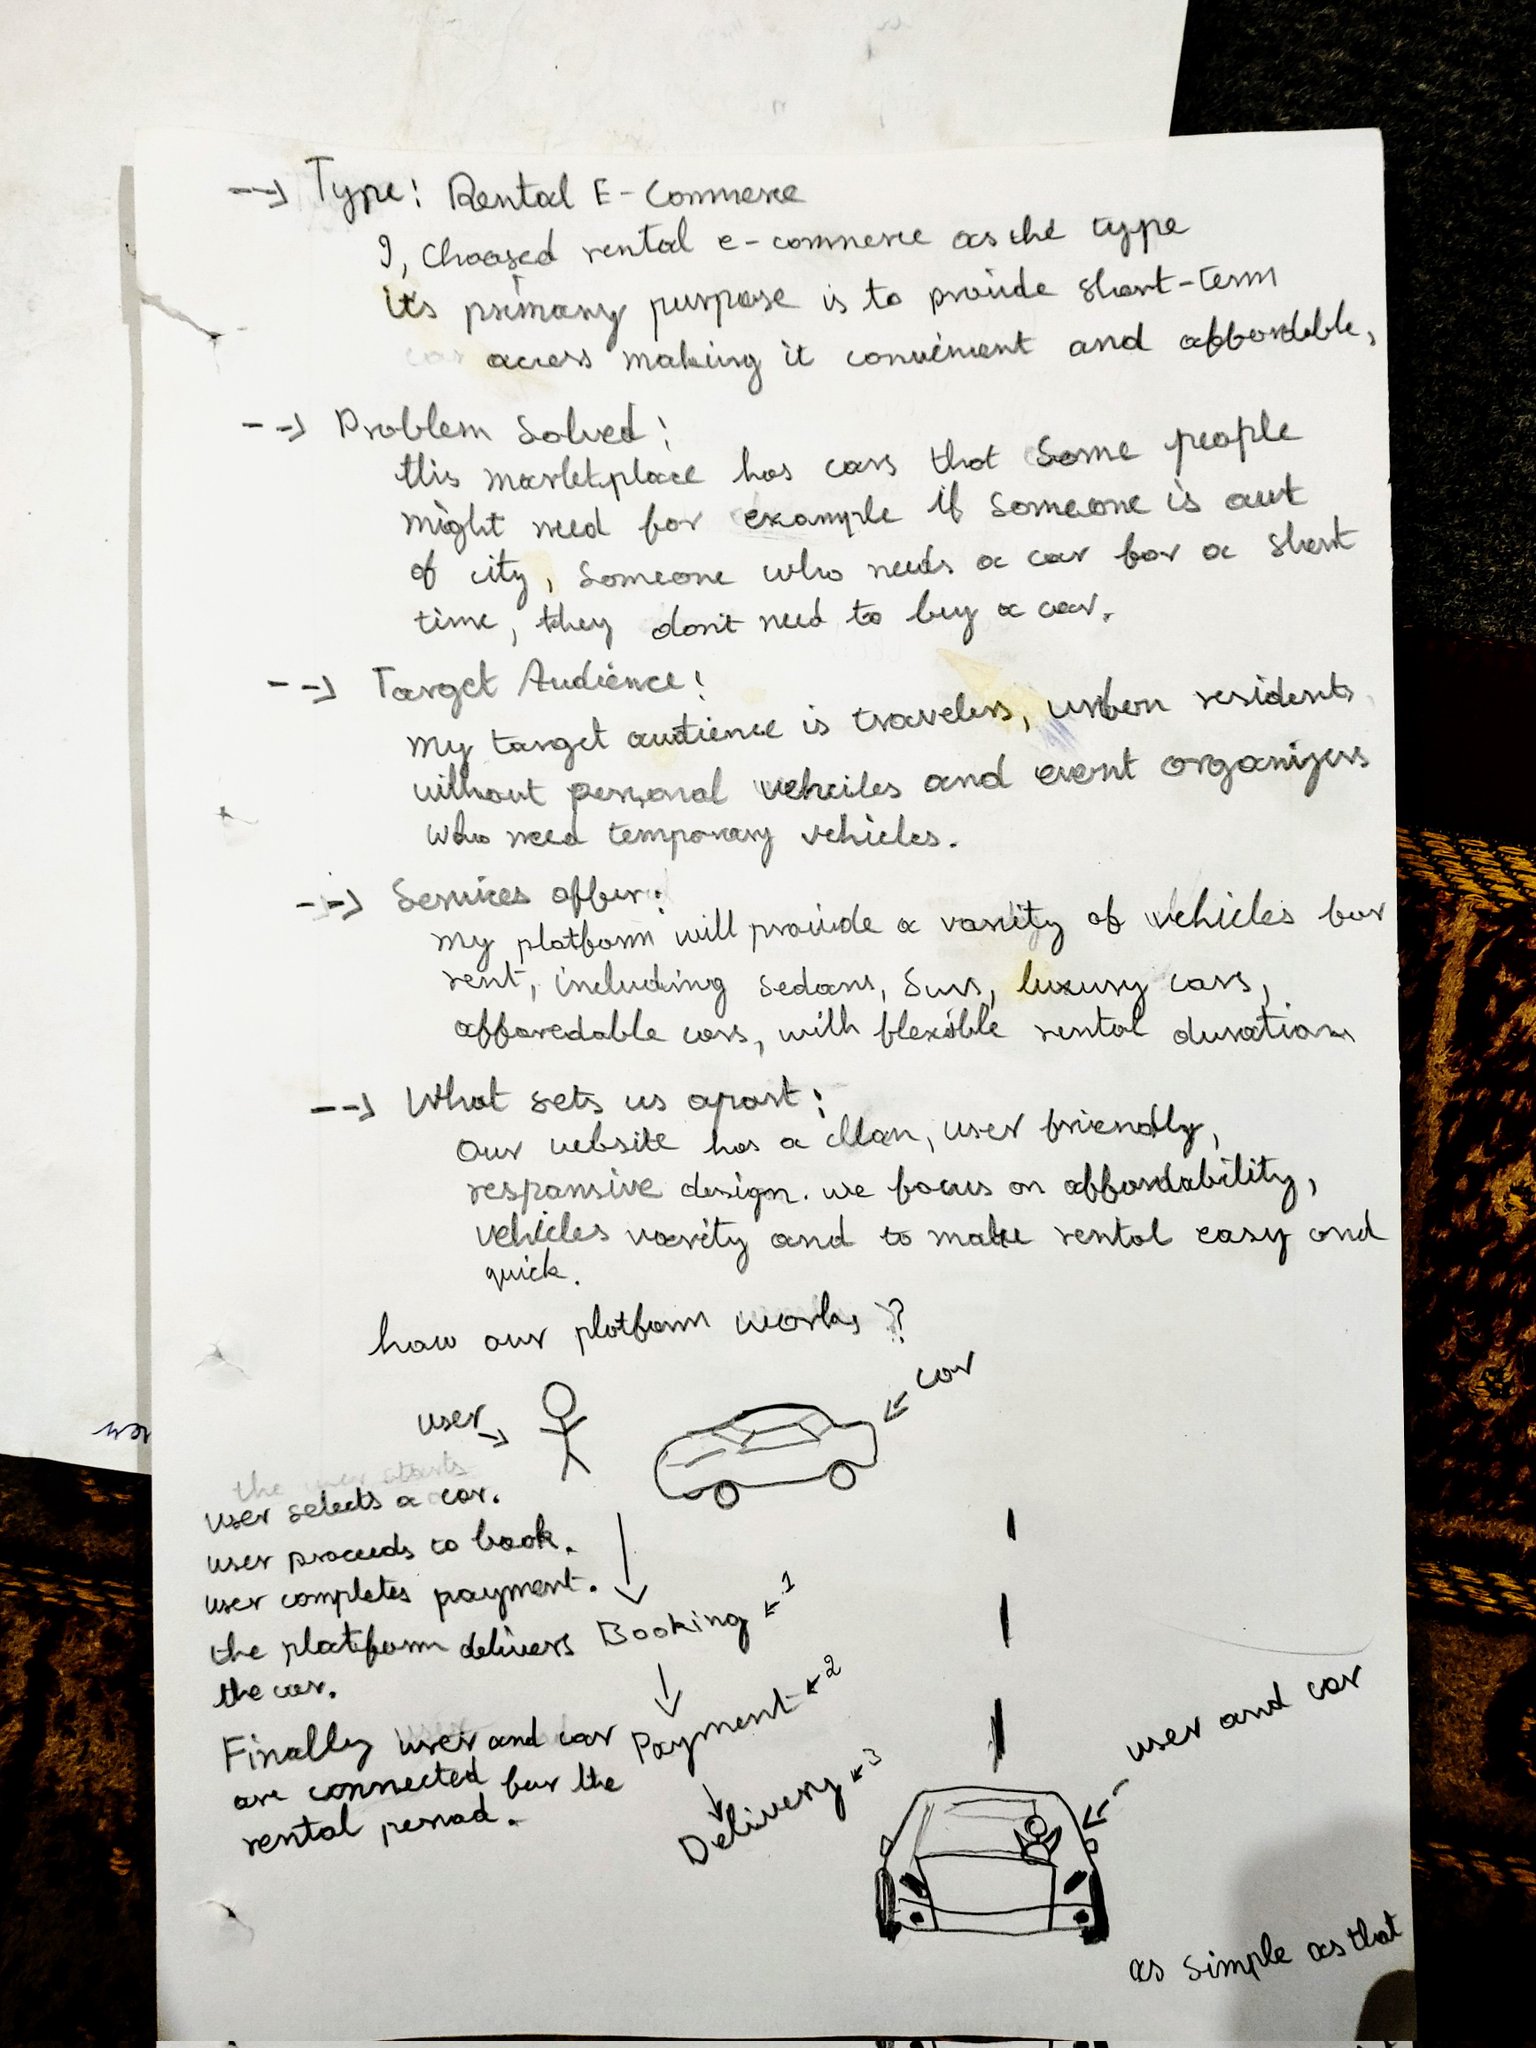 --> Type: Rental E-Commerce
I, choosed rental e-commerce as the type
it's primary purpose is to provide short-term
car access making it convenient and affordable,
--> Problem Solved:
this marketplace has cars that some people
might need for example if someone is out
of city, someone who needs a car for a short
time, they don't need to buy a car.
--> Target Audience:
my target audience is travelers, urban residents
without personal vehciles and event organizers
who need temporary vehicles.
--> Services offer:
my platform will provide a varity of vehicles for
rent, including sedans, suvs, luxury cars,
afforedable cars, with flexible rental durations
--> What sets us apart:
our website has a clean, user friendly,
responsive design. we focus on affordability,
vehicles varity and to make rental easy and
quick.
how our platform works ?
car
user
the user starts
user selects a car.
user proceeds to book.
user completes payment.
the platform delivers
the car.
Finally user and car
are connected for the
rental period.
Booking 1
Payment 2
Delivery 3
user and car
as simple as that